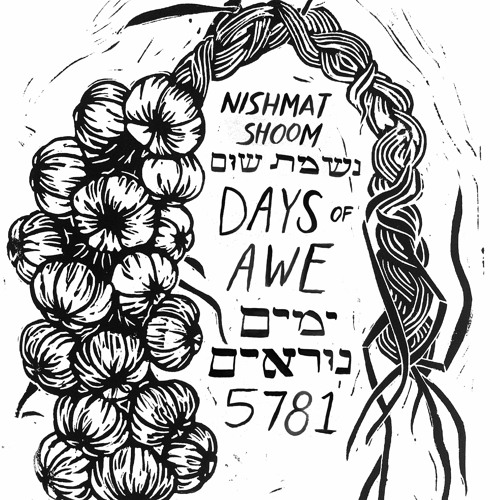 NISHMAT
SHOOM
נשמת שום
DAYS OF
AWE
ימים
נוראים
5781